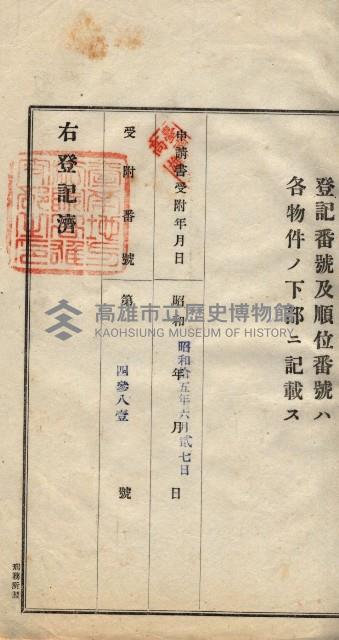 登記番號及順位番號ハ
各物件ノ下部ニ記載ス
申請書受附年月日 昭和 年 月 日
昭和拾五年六月貳七日
受附番號 第 四參八壹 號
右登記濟
高雄市立歷史博物館
KAOHSIUNG MUSEUM OF HISTORY